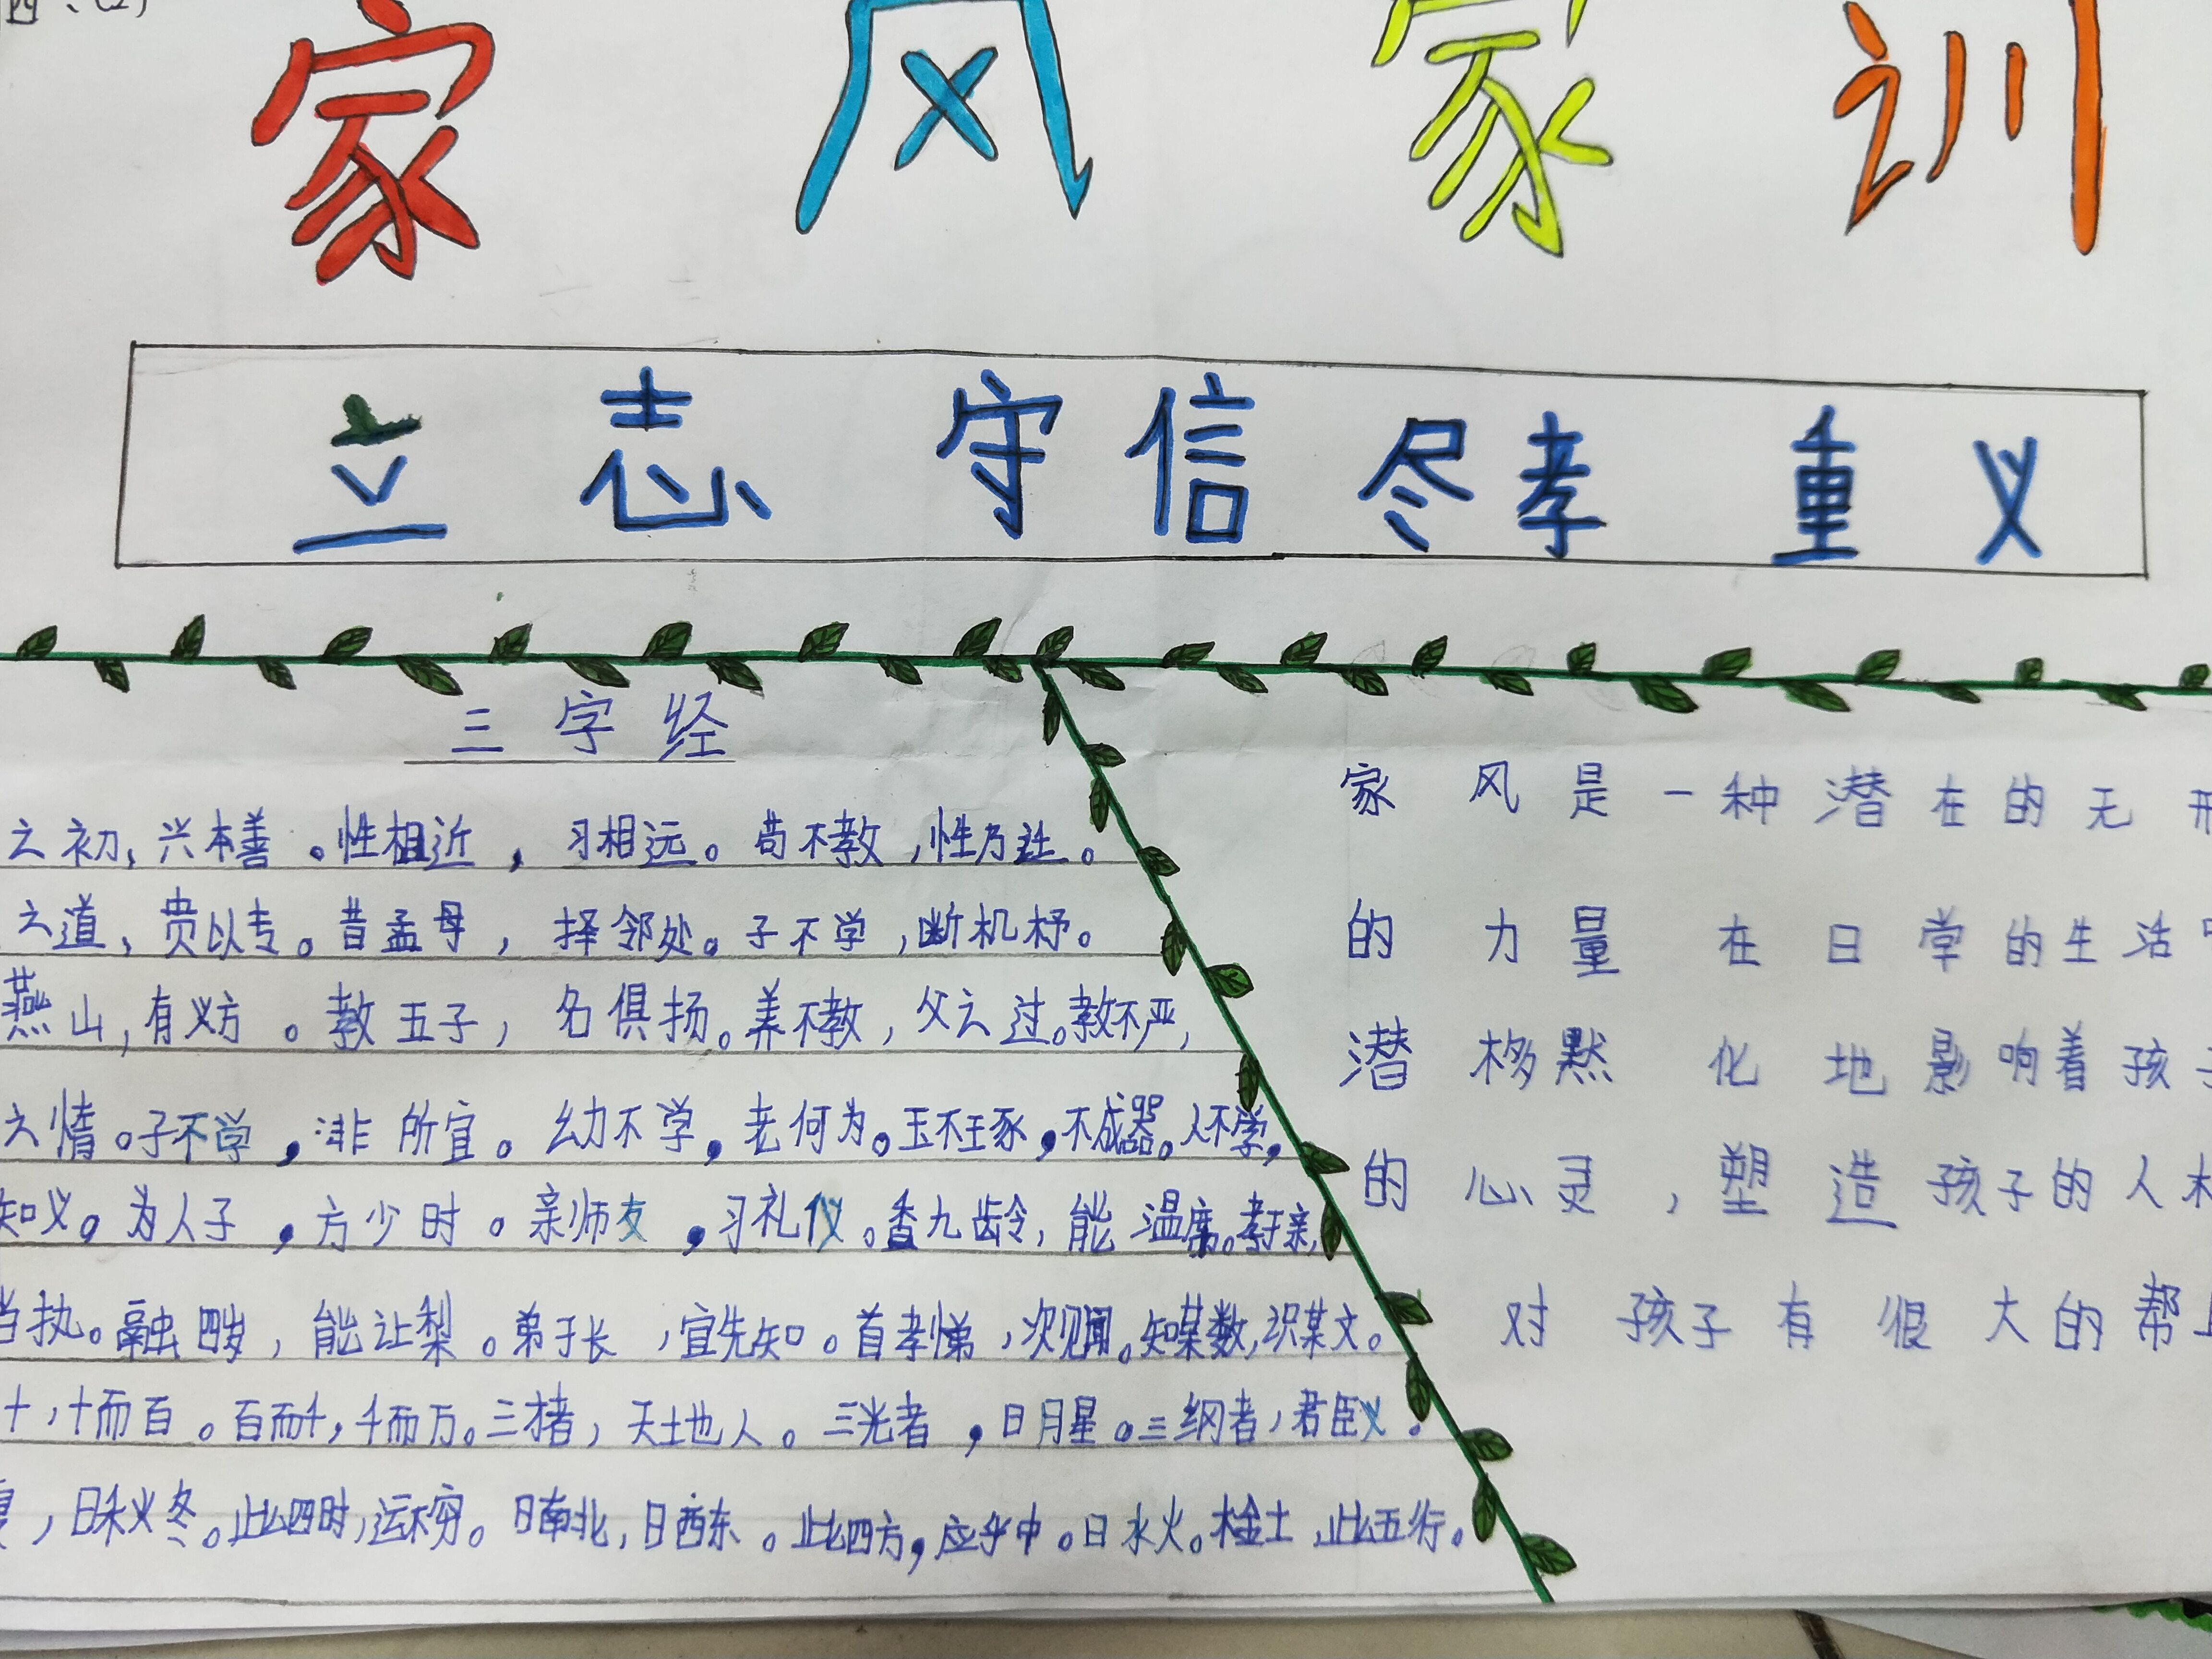 家风家训
立志 守信 尽孝 重义
三字经
之初,兴本善。性相近,习相远。苟不教,性乃迁。
之道,贵以专。昔孟母,择邻处。子不学,断机杼。
燕山,有义方。教五子,名俱扬。养不教,父之过。教不严,
之惰。子不学,非所宜。幼不学,老何为。玉不琢,不成器。人不学,
知义。为人子,方少时。亲师友,习礼仪。香九龄,能温席。孝于亲,
当执。融四岁,能让梨。弟于长,宜先知。首孝悌,次见闻。知某数,识某文。
十,十而百。百而千,千而万。三才者,天地人。三光者,日月星。三纲者,君臣义。
夏,曰秋义冬。此四时,运不穷。曰南北,曰西东。此四方,应乎中。曰水火。木金土,此五行。
家风是一种潜在的无形
的力量在日常的生活
潜移默化地影响着孩子
的心灵,塑造孩子的人
对孩子有很大的帮